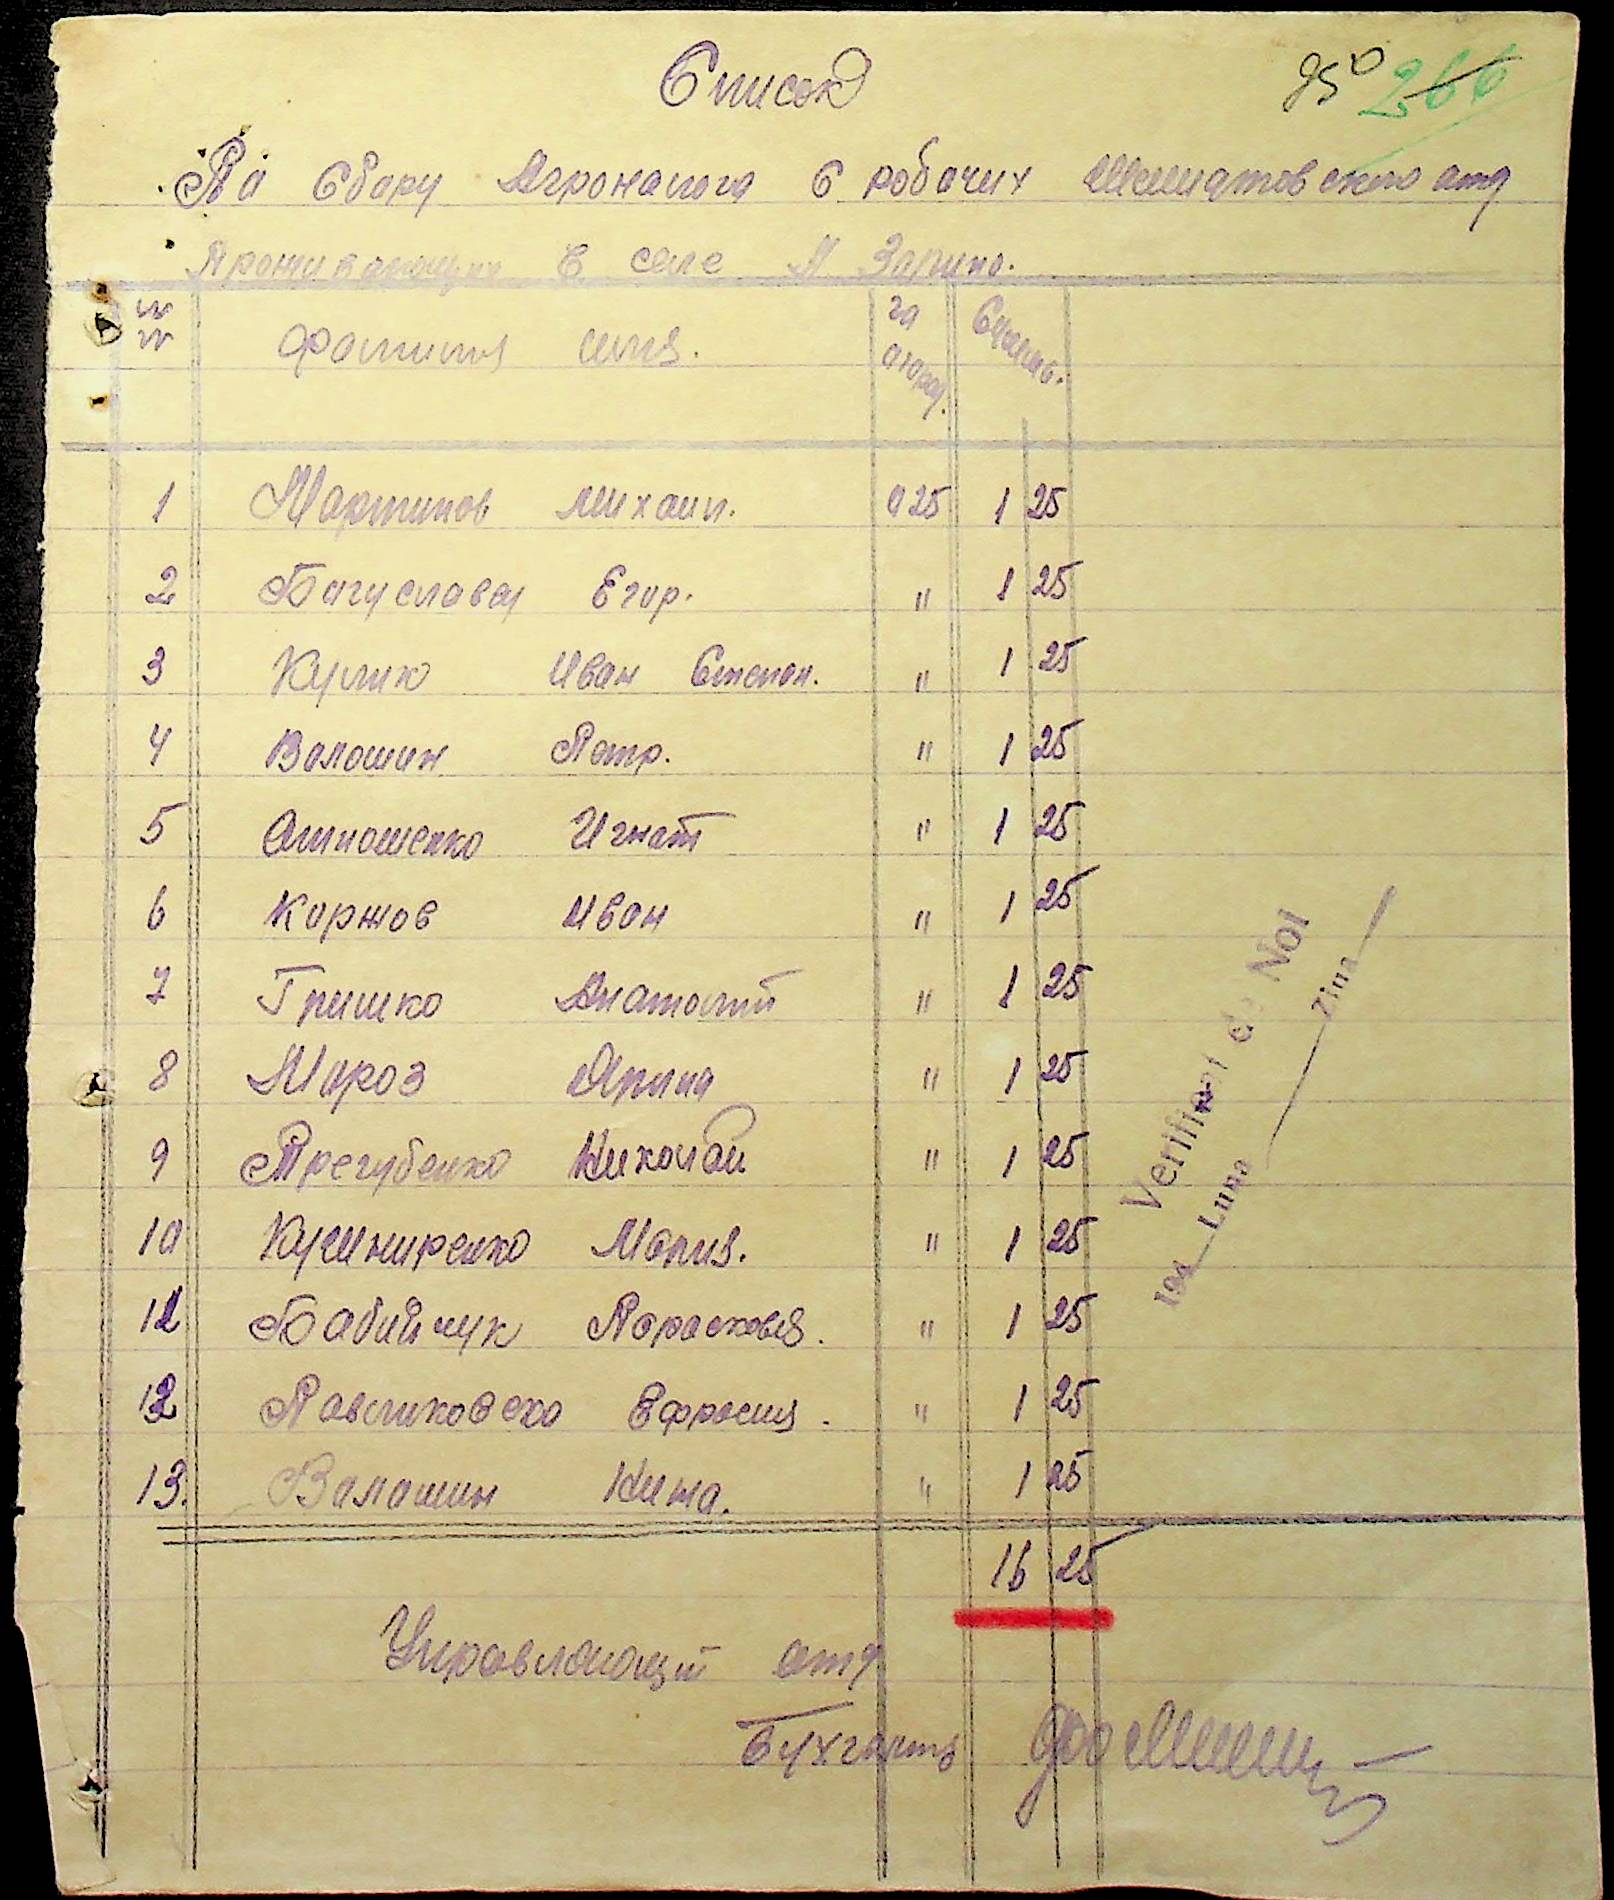 Список
950 266
Па Сбару Агроналога с робочих Шемиатовского атд
Проживающих в селе М Зарино.
№ №
Фамилия имя.
за агород.
Сумма.
1 Мартинов Михаил. 0 25 1 25
2 Багуславец Егор. " 1 25
3 Кулик Иван Степан. " 1 25
4 Валошин Петр. " 1 25
5 Игнат " 1 25
6 Каржов Иван " 1 25
7 Гришко Анатолий " 1 25
8 Мароз Арина " 1 25
9 Трегубенко Николай " 1 25
10 Кушниренко Мария. " 1 25
11 Бабийчук Парасковия. " 1 25
12 Павликовска Ефросия. " 1 25
13. Валашин Нина. " 1 25
16 25
Управляющий атд
Бухгалтер
Verificat de Noi
194 Luna Ziua